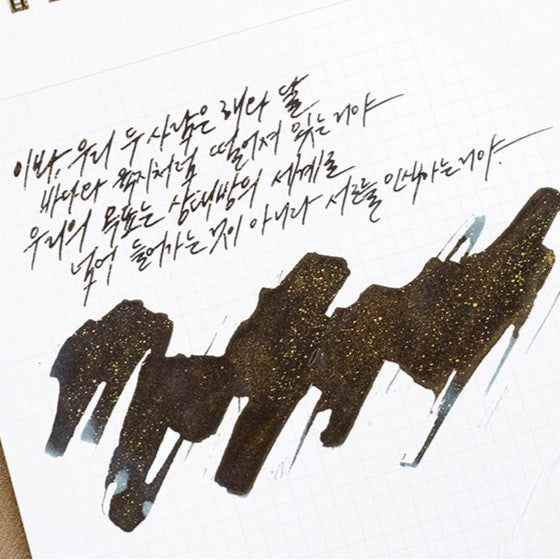 이봐, 우리 두 사람은 해와 달
바다와 육지처럼 떨어져 있는 거야
우리의 목표는 상대방의 세계로
넘어 들어가는 것이 아니라 서로를 인식하는 거야.